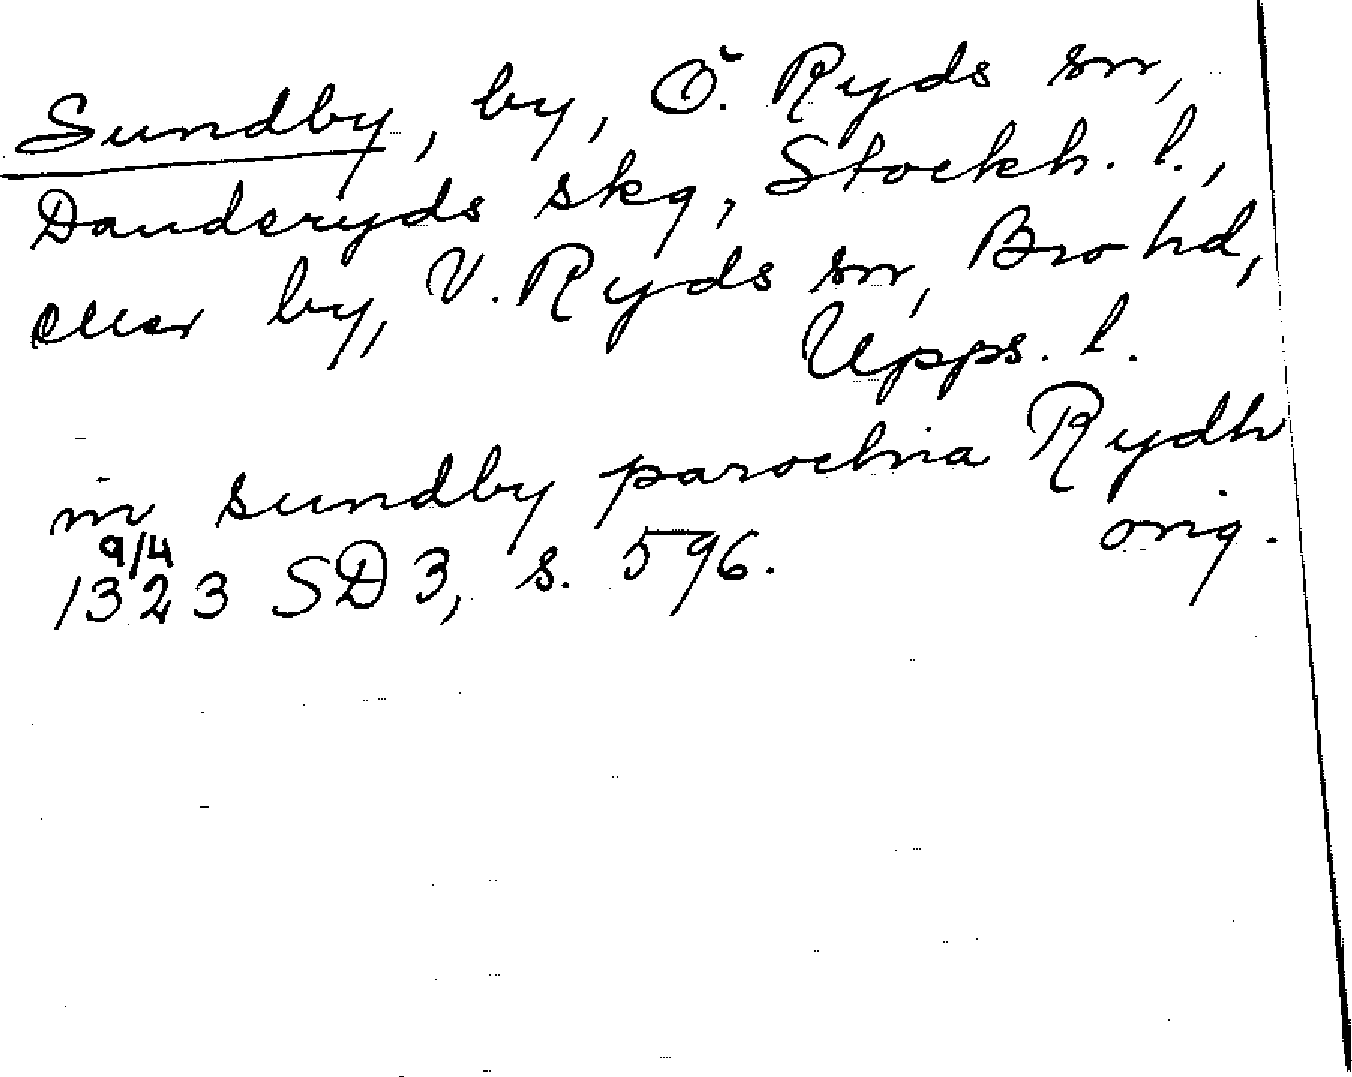 Sundby, by, Ö. Ryds sn,
Danderyds skg, Stockh. l.,
eller by, V. Ryds sn, Bro hd,
Upps. l.
in sundby parochia Rydh
orig.
9/4
1323 SD 3, s. 596.